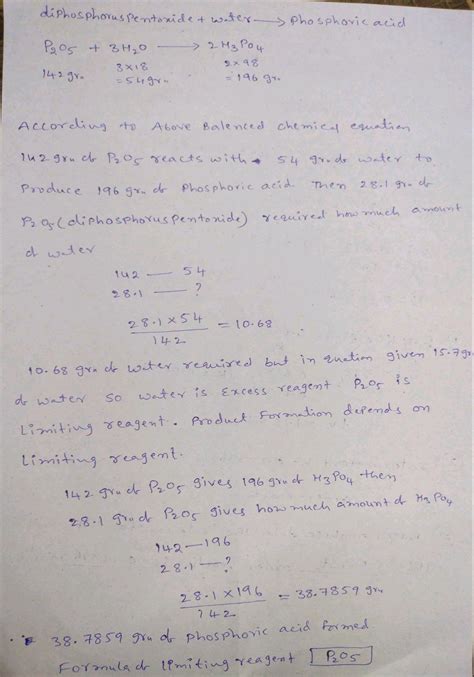 diphosphorus pentoxide + water ⟶ phosphoric acid
P₂O₅ + 3H₂O ⟶ 2H₃PO₄
142 gm 3×18 2×98
= 54 gm = 196 gm
According to Above Balenced chemical equation
142 gm of P₂O₅ reacts with 54 gm of water to
Produce 196 gm of Phosphoric acid Then 28.1 gm of
P₂O₅ (diphosphorus pentoxide) required how much amount
of water
142 — 54
28.1 — ?
28.1 × 54 / 142 = 10.68
10.68 gm of water required but in quetion given 15.7 gm
of water so water is Excess reagent P₂O₅ is
Limiting reagent. Product Formation depends on
Limiting reagent.
142 gm of P₂O₅ gives 196 gm of H₃PO₄ then
28.1 gm of P₂O₅ gives how much amount of H₃PO₄
142 — 196
28.1 — ?
28.1 × 196 / 142 = 38.7859 gm
∴ 38.7859 gm of phosphoric acid formed
Formula of limiting reagent P₂O₅